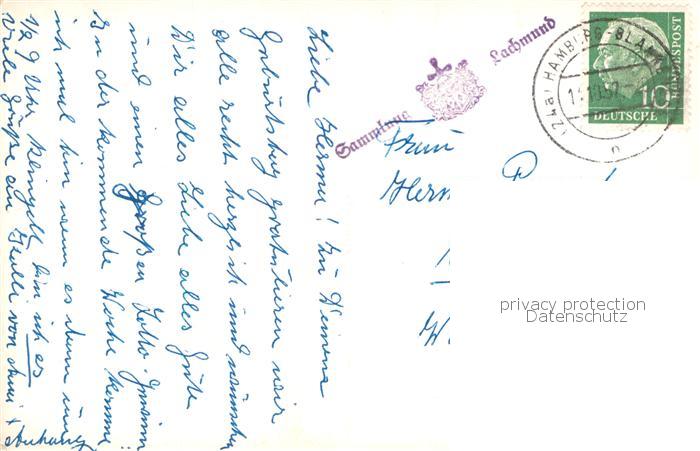 Liebe Herma! Zu Deinem
Geburtstag gratulieren wir
alle recht herzlich und wünschen
Dir alles Liebe alles Gute
und einen großen Lotto-Gewinn
In der kommenden Woche komme
ich mal hin wenn es dann um
1/2 9 Uhr klingelt bin ich es
Viele Grüße an von
Sammlung Lachmund
Frau
Herm
W.
(24a) HAMBURG-BLANK
DEUTSCHE BUNDESPOST
10
privacy protection
Datenschutz